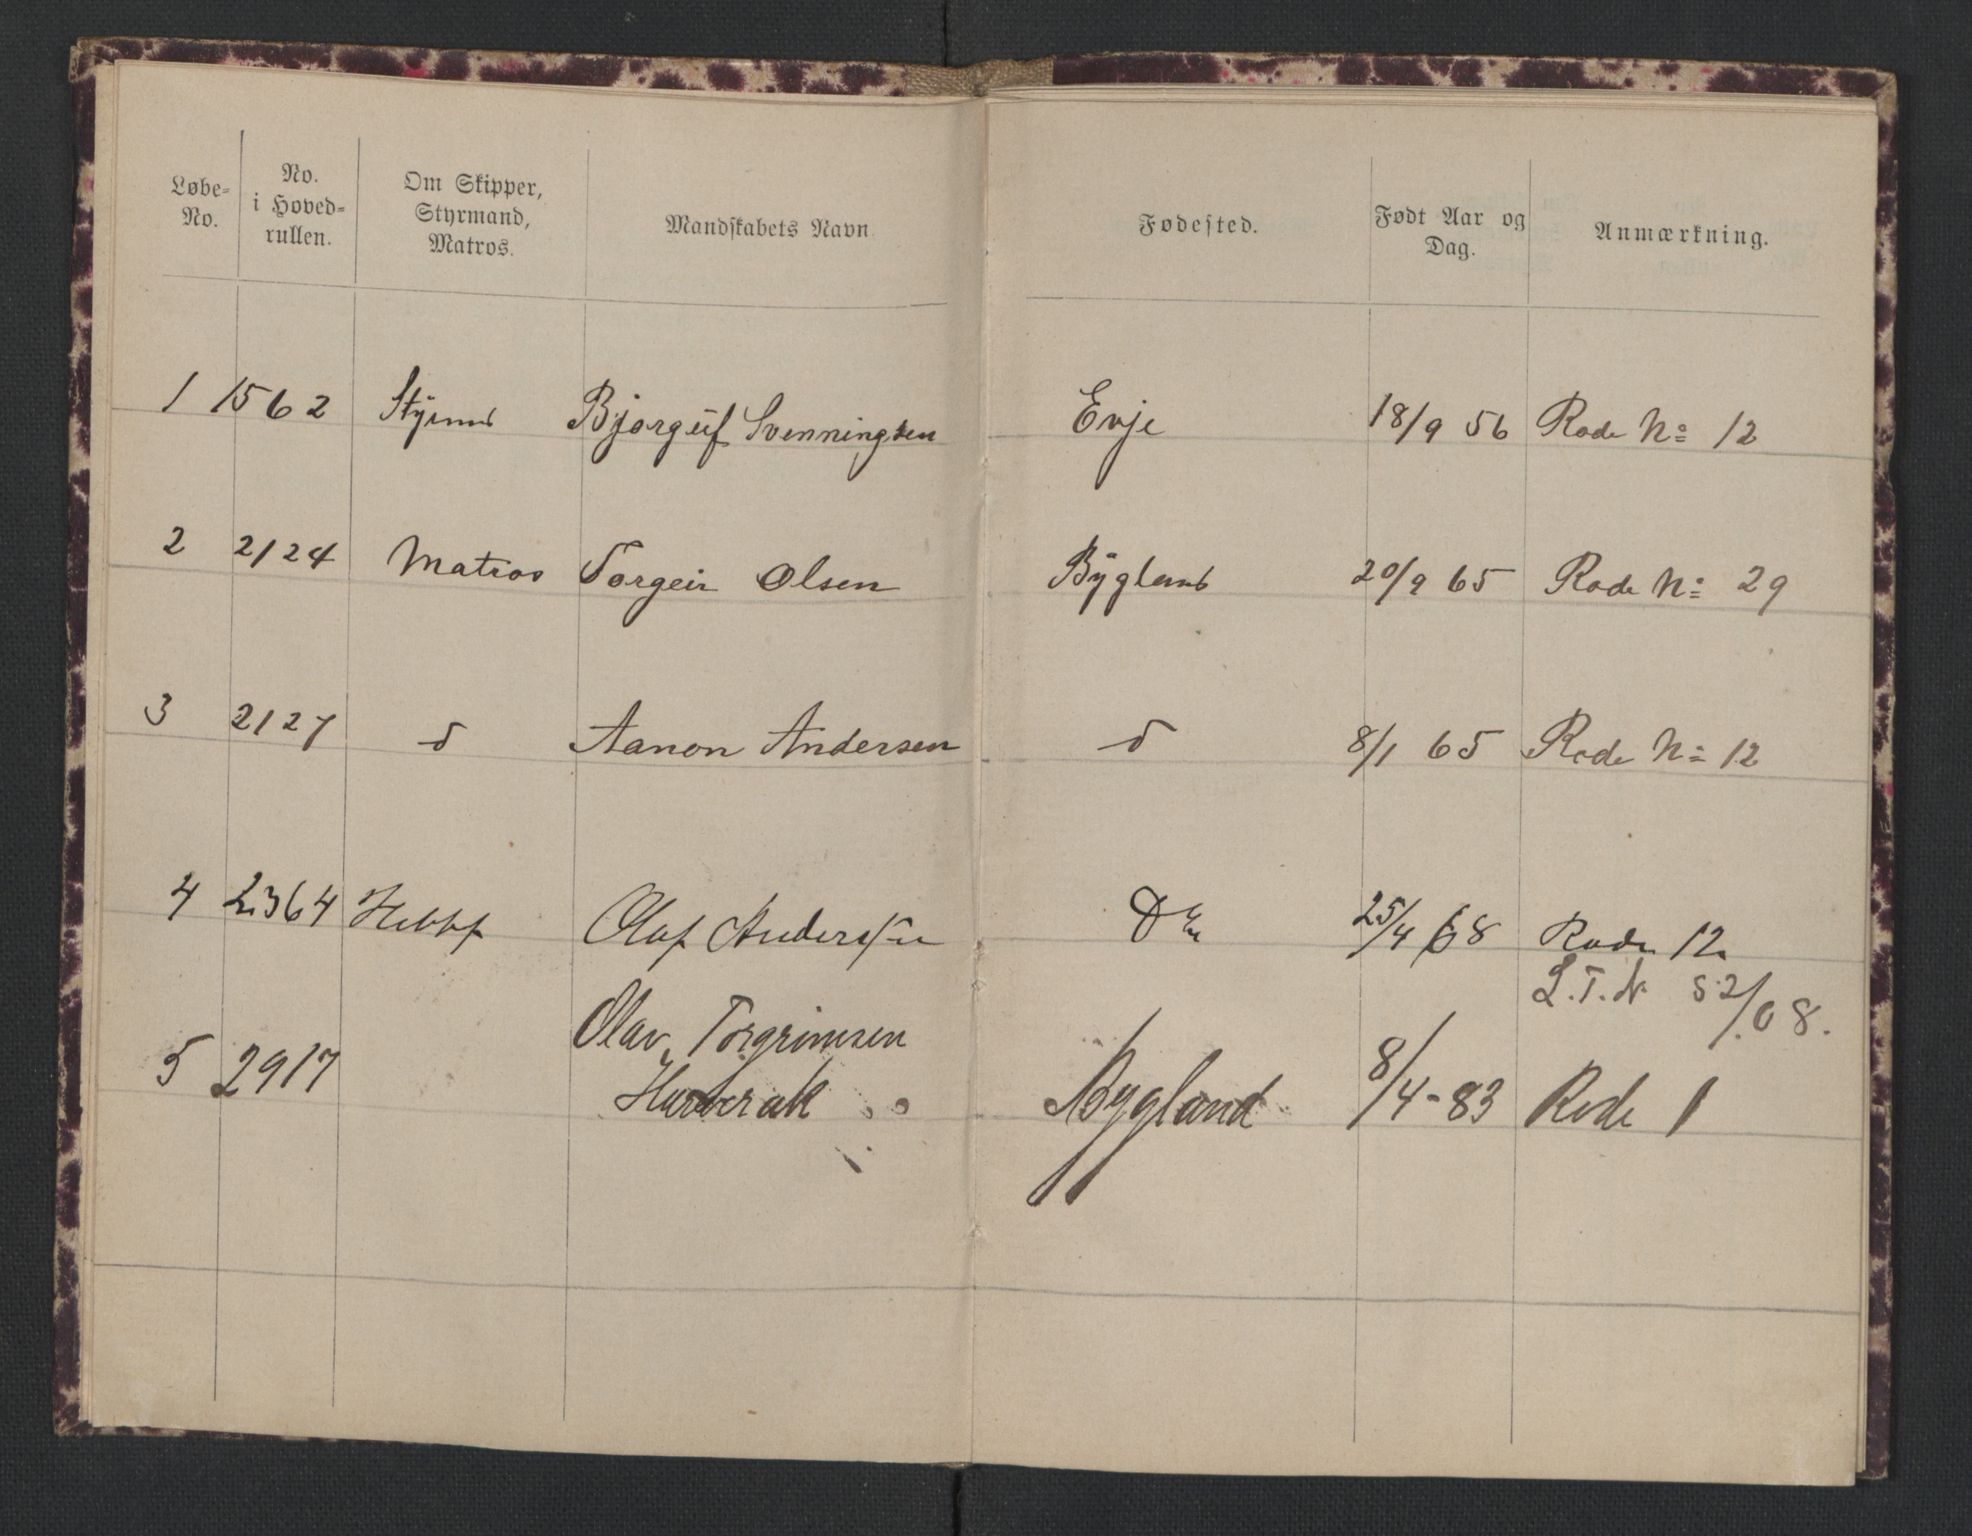 Løbe-
No.
No.
i Hoved-
rullen.
Om Skipper,
Styrmand,
Matros.
Mandskabets Navn
Fødested.
Født Aar og
Dag.
Anmærkning.
1 1562 Styrmd Bjorguf Svenningsen Evje 18/9 56 Rode No 12
2 2124 Matros Torgeir Olsen Bygland 20/9 65 Rode No 29
3 2127 d Aanon Andersen d 8/1 65 Rode No 12
4 2364 Olaf Anderssen 25/4 68 Rode 12
L.T.N. 52/08.
5 2917 Olav Torgrimsen
Bygland 8/4-83 Rode 1